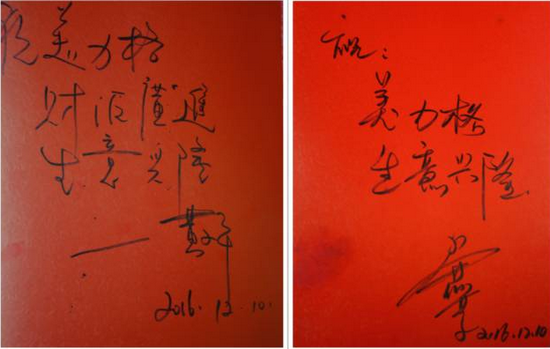 祝美力格
财源廣進
生意兴隆
2016.12.10.
祝:
美力格
生意兴隆
2016.12.10